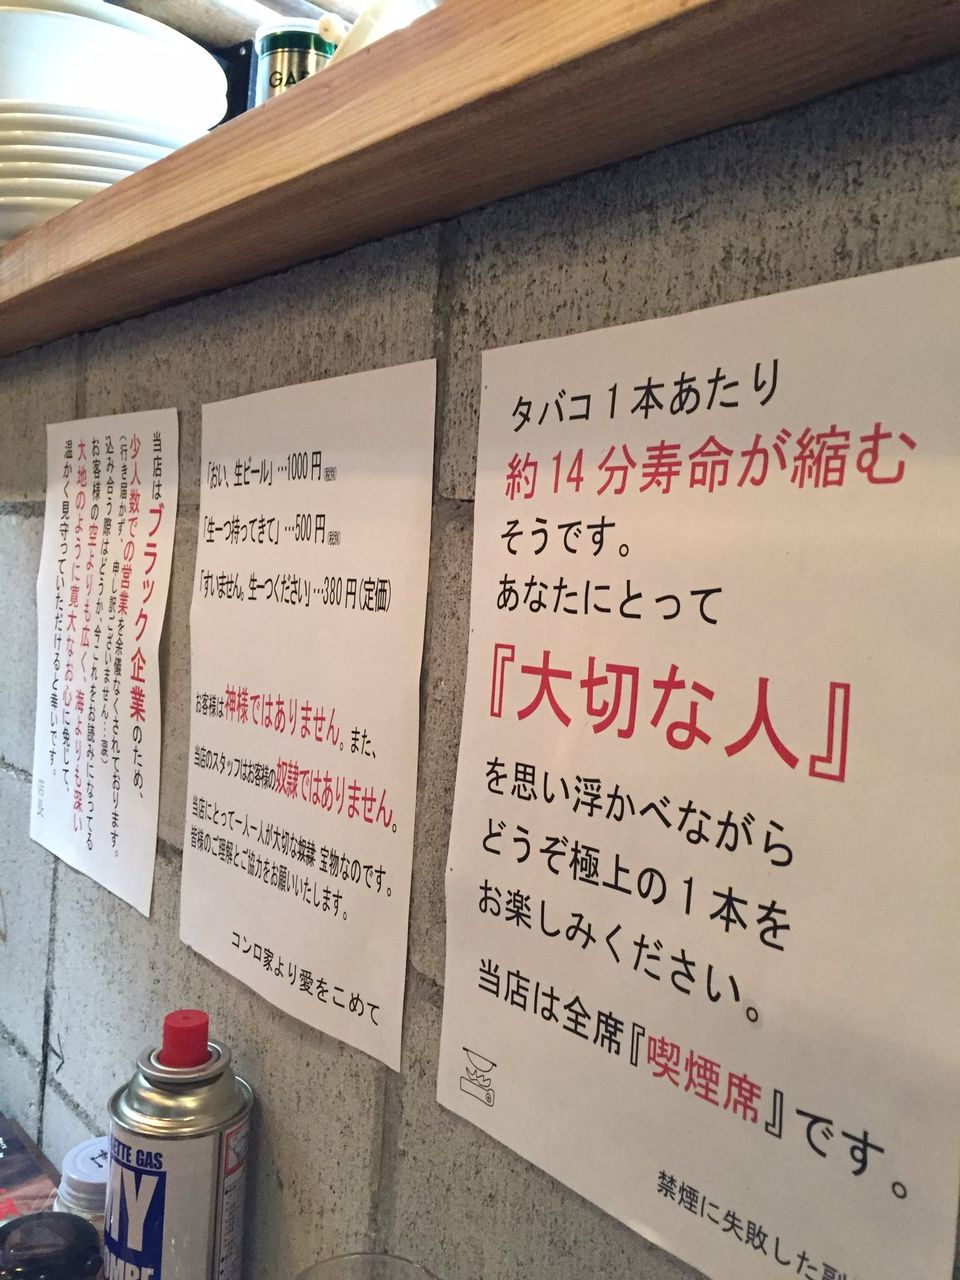 当店はブラック企業のため、
少人数での営業を余儀なくされております。
(行き届かず、申し訳ございません…涙)
込み合う際はどうか、今これをお読みになってる
お客様の空よりも広く、海よりも深い
大地のように寛大なお心に免じて、
温かく見守っていただけると幸いです。
店長
「おい、生ビール」…1000円(税別)
「生一つ持ってきて」…500円(税別)
「すいません。生一つください」…380円(定価)
お客様は神様ではありません。また、
当店のスタッフはお客様の奴隷ではありません。
当店にとって一人一人が大切な奴隷 宝物なのです。
皆様のご理解とご協力をお願いいたします。
コンロ家より愛をこめて
タバコ1本あたり
約14分寿命が縮む
そうです。
あなたにとって
『大切な人』
を思い浮かべながら
どうぞ極上の1本を
お楽しみください。
当店は全席『喫煙席』です。
禁煙に失敗した
GA
ETTE GAS
MY